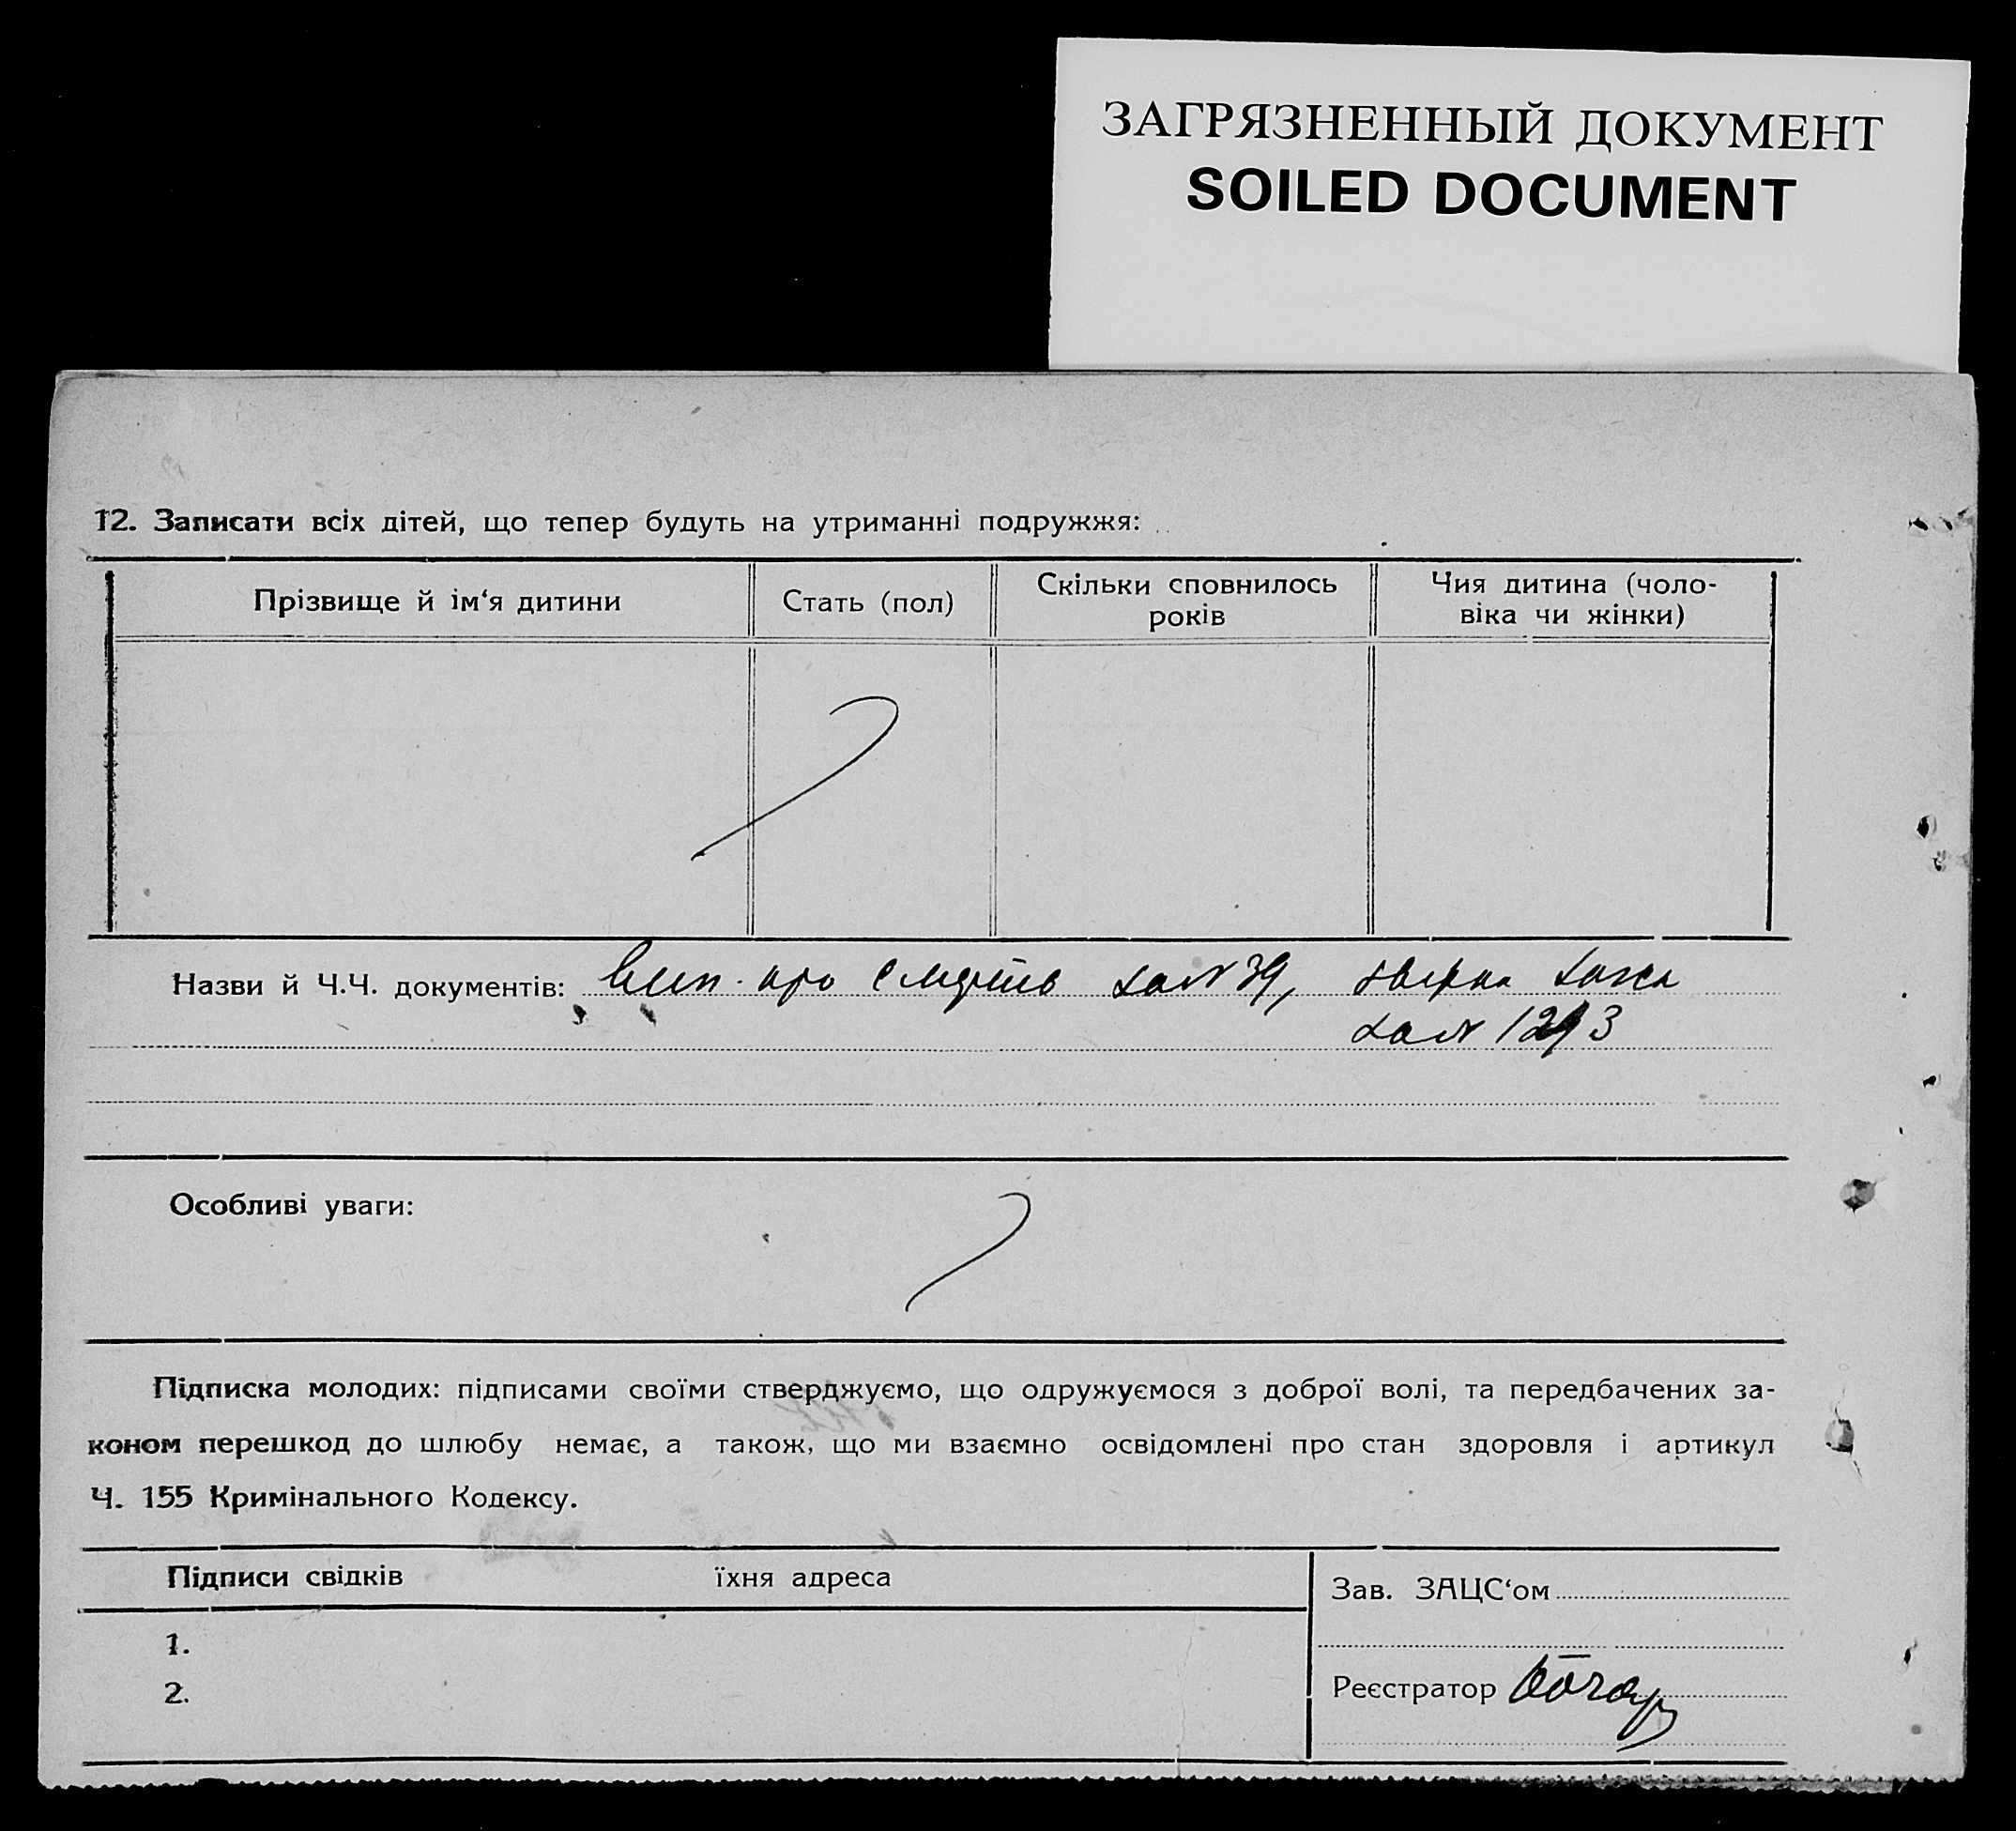 ЗАГРЯЗНЕННЫЙ ДОКУМЕНТ
SOILED DOCUMENT
12. Записати всіх дітей, що тепер будуть на утриманні подружжя:
Прізвище й ім‘я дитини
Стать (пол)
Скільки сповнилось
років
Чия дитина (чоло-
віка чи жінки)
Назви й Ч.Ч. документів: Вип. про смерть за № 39,
за №
Особливі уваги:
Підписка молодих: підписами своїми стверджуємо, що одружуємося з доброї волі, та передбачених за-
коном перешкод до шлюбу немає, а також, що ми взаємно освідомлені про стан здоровля і артикул
Ч. 155 Кримінального Кодексу.
Підписи свідків їхня адреса
Зав. ЗАЦС‘ом
1.
2.
Реєстратор